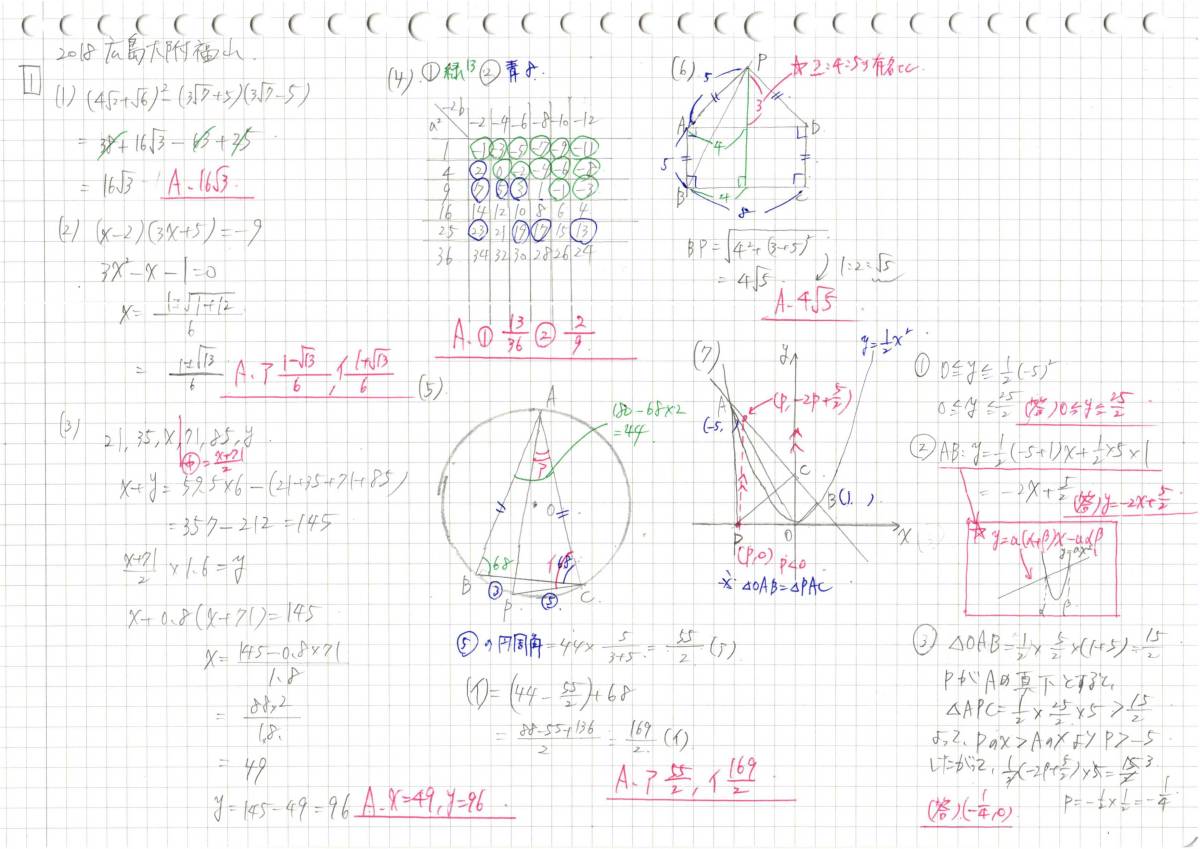 2018 広島大附福山
1
(1) (4√2+√6)²-(3√7+5)(3√7-5)
= 38+16√3-63+25
= 16√3 A. 16√3
(2) (x-2)(3x+5)=-9
3x²-x-1=0
x= 1±√1+12 / 6
= 1±√13 / 6 A. ア 1-√13 / 6, イ 1+√13 / 6
(3) 21, 35, x, 71, 85, y
中= x+71 / 2
x+y= 59.5×6-(21+35+71+85)
= 357-212=145
x+71 / 2 ×1.6=y
x+0.8(x+71)=145
x= 145-0.8×71 / 1.8
= 88.2 / 1.8
= 49
y=145-49=96 A. x=49, y=96
(4) ①緑13 ②青8
a² -2b -2 -4 -6 -8 -10 -12
1 -1 -3 -5 -7 -9 -11
4 2 0 -2 -4 -6 -8
9 7 5 3 1 -1 -3
16 14 12 10 8 6 4
25 23 21 19 17 15 13
36 34 32 30 28 26 24
A. ① 13/36 ② 2/9
(5)
A
180-68×2
=44
ア
O
68
イ
68
B
③
P
⑤
C
⑤の円周角=44× 5 / 3+5 = 55 / 2 (ア)
(イ)=(44- 55/2)+68
= 88-55+136 / 2 = 169 / 2 (イ)
A. ア 55/2, イ 169/2
(6)
P
☆3:4:5の有名な
5
3
A
D
4
5
B
4
C
8
BP=√4²+(3+5)²
= 4√5
1:2:√5
A. 4√5
(7)
y
y=½x²
A
(-5, )
(p, -2p+5/2)
C
B(1, )
D
O
x
(p,0) p<0
※ △OAB=△PAC
① 0≦y≦½(-5)²
0≦y≦25/2 (答) 0≦y≦25/2
② AB: y=½(-5+1)x+½×5×1
= -2x+5/2
(答) y=-2x+5/2
☆ y=a(α+β)x-aαβ
y=ax²
α
β
③ △OAB=½×5/2×(1+5)=15/2
PがAの真下とすると、
△APC=½×25/2×5>15/2
よって、Pのx>Aのxよりp>-5
したがって、½(-2p+5/2)×5=15/2 3
p=-½×½=-¼
(答) (-¼,0)